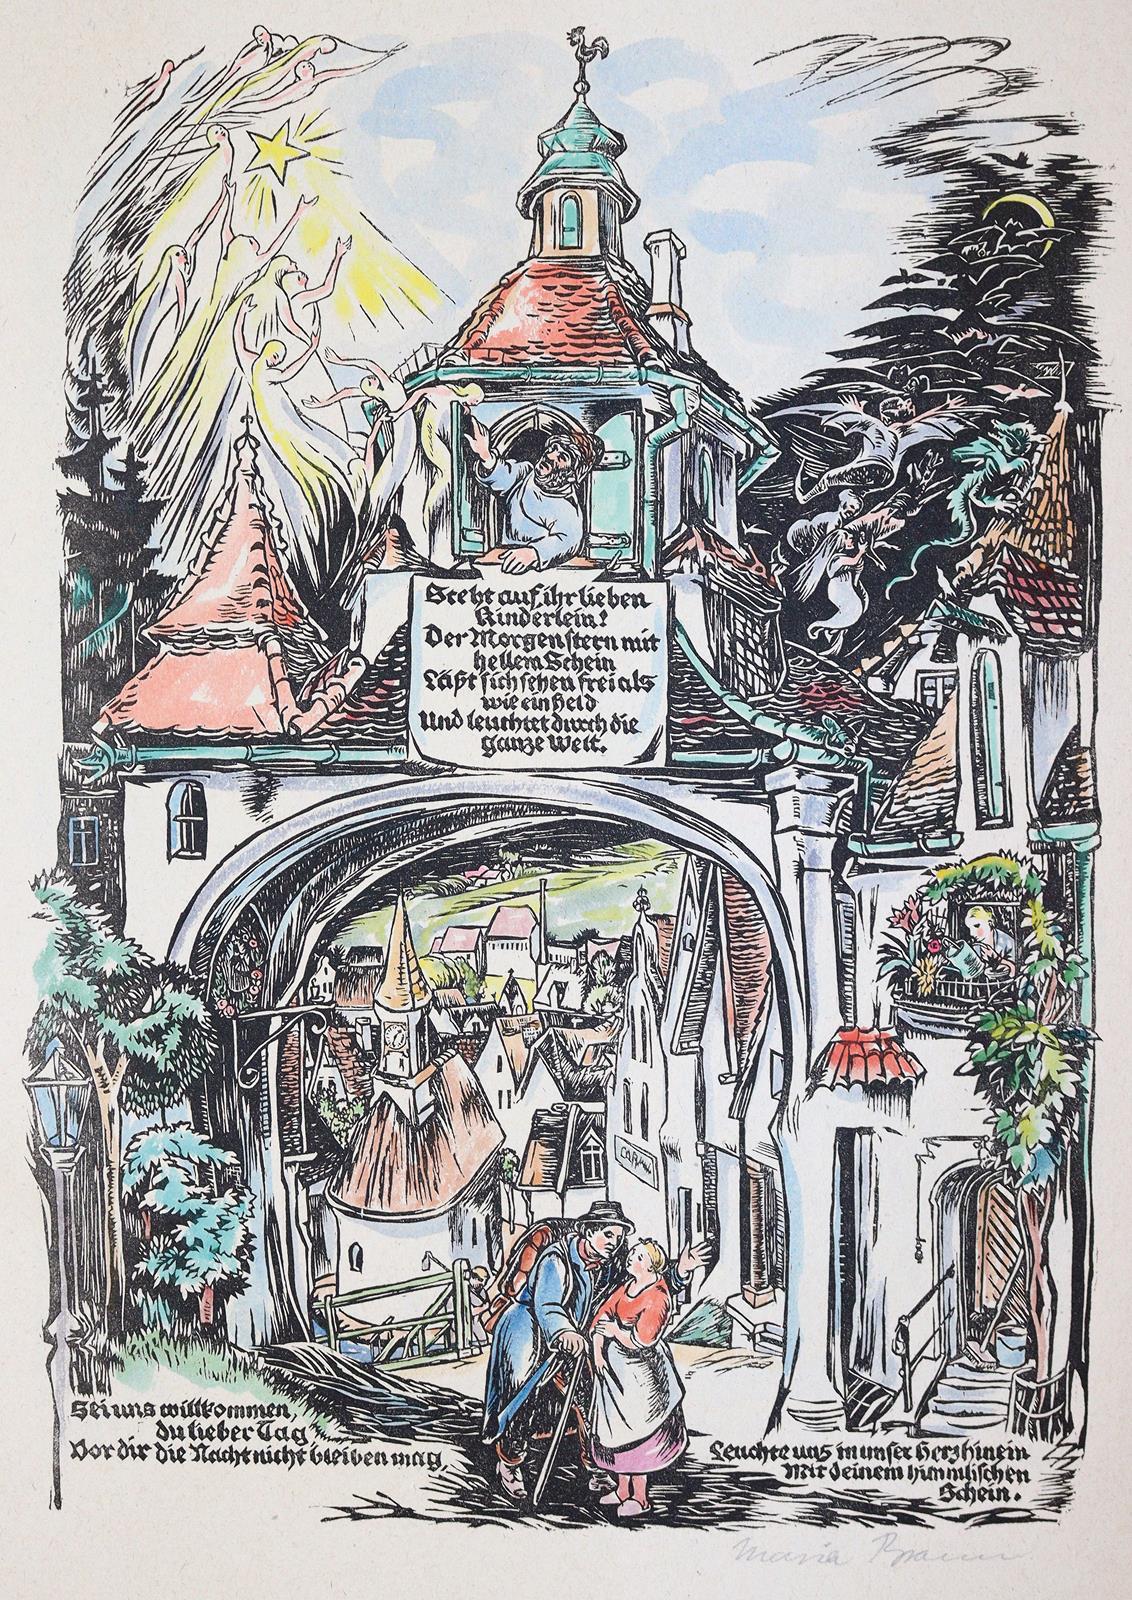 Steht auf, ihr lieben
Kinderlein!
Der Morgenstern mit
hellem Schein
Läßt sich sehen frei als
wie ein Held
Und leuchtet durch die
ganze Welt.
Sei uns willkommen,
du lieber Tag
Vor dir die Nacht nicht bleiben mag,
Leuchte uns in unser Herz hinein
Mit deinem himmlischen
Schein.
Maria Braun